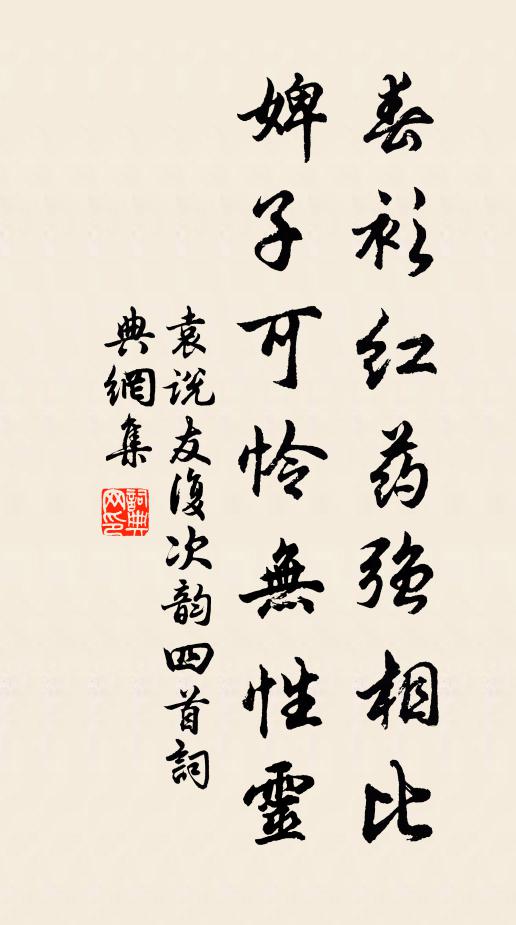 春衫红药强相比
婢子可怜無性靈
袁说友復次韵四首詞
典網集
詞典
网印